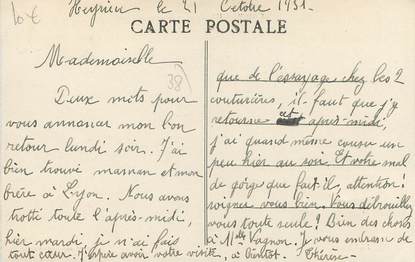 10 €
Heyrieu le 21 Octobre 1931.
CARTE POSTALE
38
Mademoiselle
Deux mots pour
vous annoncer mon bon
retour lundi soir. J'ai
bien trouvé maman et mon
frère à Lyon. Nous avons
trotté toute l'après-midi,
hier mardi, je n'ai fais
que de l'essayage chez les 2
couturières, il faut que j'y
retourne cet après-midi,
j'ai quand même cousu un
peu hier au soir. Et votre mal
de gorge que fait-il, attention!
soignez vous bien. Vous débrouillez
vous toute seule? Bien des choses
à Mlle Vagnon. Je vous embrasse de
tout cœur. J'espère avoir votre visite,
à bientôt. Thérèse